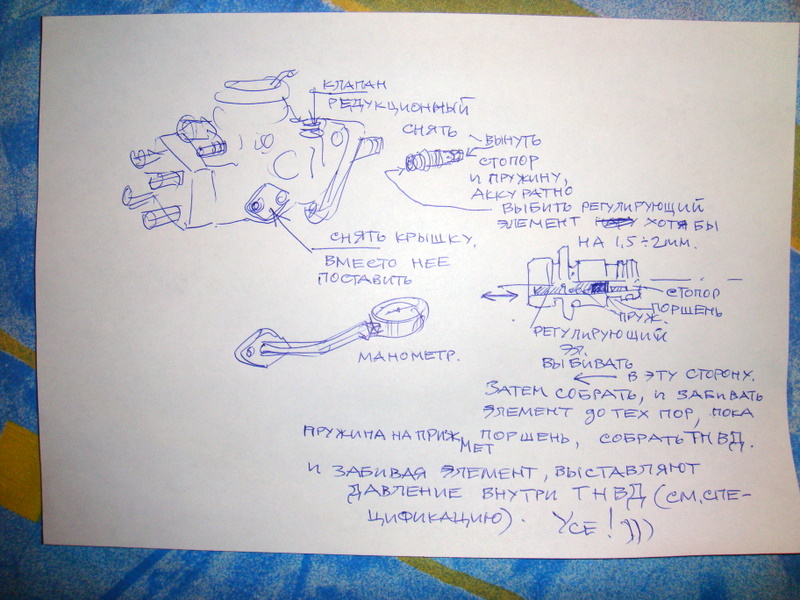 КЛАПАН
РЕДУКЦИОННЫЙ
СНЯТЬ
ВЫНУТЬ
СТОПОР
И ПРУЖИНУ,
АККУРАТНО
ВЫБИТЬ РЕГУЛИРУЮЩИЙ
ЭЛЕМЕНТ ХОТЯ БЫ
НА 1,5÷2ММ.
СНЯТЬ КРЫШКУ,
ВМЕСТО НЕЕ
ПОСТАВИТЬ
МАНОМЕТР.
СТОПОР
ПОРШЕНЬ
ПРУЖ.
РЕГУЛИРУЮЩИЙ
ЭЛ.
ВЫБИВАТЬ
В ЭТУ СТОРОНУ.
ЗАТЕМ СОБРАТЬ, И ЗАБИВАТЬ
ЭЛЕМЕНТ ДО ТЕХ ПОР, ПОКА
ПРУЖИНА НА ПРИЖМЕТ ПОРШЕНЬ, СОБРАТЬ ТНВД.
И ЗАБИВАЯ ЭЛЕМЕНТ, ВЫСТАВЛЯЮТ
ДАВЛЕНИЕ ВНУТРИ ТНВД (СМ. СПЕ-
ЦИФИКАЦИЮ). УСЕ! )))